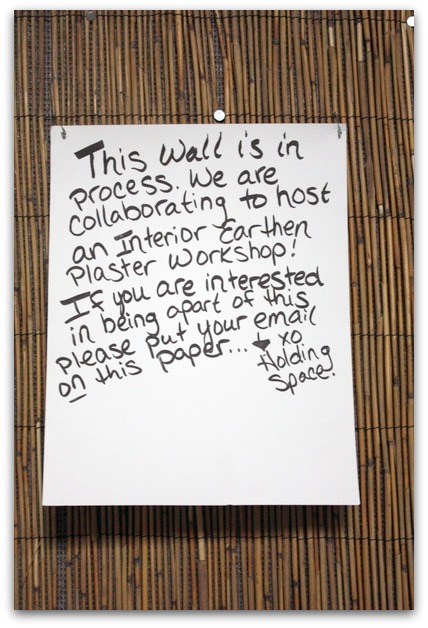 This wall is in
process. We are
collaborating to host
an Interior Earthen
Plaster Workshop!
If you are interested
in being apart of this
please put your email
on this paper...
xo
Holding
Space!